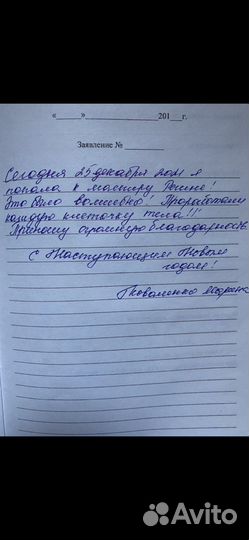 «____»____________201___г.
Заявление № ________
Сегодня 25 декабря 2021 я
попала к мастеру Регине!
Это было волшебно! Проработали
каждую клеточку тела!!!
Приношу огромную благодарность
С Наступающим Новым
годом!
Avito